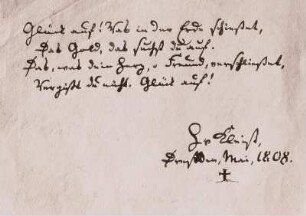 Glück auf! Was in der Erde schießet,
Das Gold, das suchst du auf.
Das, was dein Herz, o Freund, verschließet,
Vergißt du nicht. Glück auf!
H v Kleist,
Dresden, Mai, 1808.